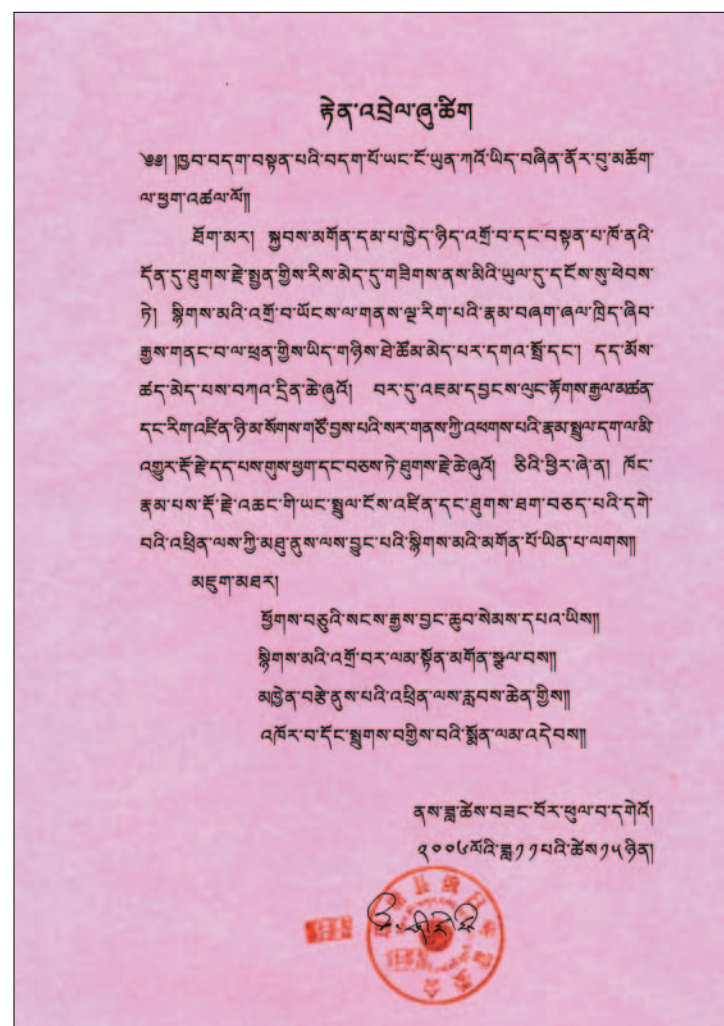 རྟེན་འབྲེལ་ཞུ་ཚིག
༄༅། །ཁྱབ་བདག་བསྟན་པའི་བདག་པོ་ཡང་ངོ་ཡུན་ཀའོ་ཡིད་བཞིན་ནོར་བུ་མཆོག་
ལ་ཕྱག་འཚལ་ལོ།།
ཐོག་མར། སྐྱབས་མགོན་དམ་པ་ཁྱེད་ཉིད་འགྲོ་བ་དང་བསྟན་པ་ཁོ་ནའི་
དོན་དུ་ཐུགས་རྗེ་སྤྱན་གྱིས་རིས་མེད་དུ་གཟིགས་ནས་མིའི་ཡུལ་དུ་དངོས་སུ་ཕེབས་
ཏེ། སྙིགས་མའི་འགྲོ་བ་ཡོངས་ལ་གནས་ལྔ་རིག་པའི་རྣམ་བཞག་ཞལ་ཁྲིད་ཞིབ་
རྒྱས་གནང་བ་ལ་ཕྲན་གྱིས་ཡིད་གཉིས་ཐེ་ཚོམ་མེད་པར་དགའ་སྤྲོ་དང་། དད་མོས་
ཚད་མེད་པས་བཀའ་དྲིན་ཆེ་ཞུའོ། བར་དུ་འཇམ་དབྱངས་ལུང་རྟོགས་རྒྱལ་མཚན་
དང་རིག་འཛིན་ཉི་མ་སོགས་གཙོ་བྱས་པའི་སར་གནས་ཀྱི་འཕགས་པའི་རྣམ་སྤྲུལ་དག་ལ་མི་
འགྱུར་རྡོ་རྗེ་དད་པས་གུས་ཕྱག་དང་བཅས་ཏེ་ཐུགས་རྗེ་ཆེ་ཞུའོ། ཅིའི་ཕྱིར་ཞེ་ན། ཁོང་
རྣམ་པས་རྡོ་རྗེ་འཆང་གི་ཡང་སྤྲུལ་ངོས་འཛིན་དང་ཐུགས་ཐག་བཅད་པའི་དགེ་
བའི་འཕྲིན་ལས་ཀྱི་མཐུ་ནུས་ལས་བྱུང་བའི་སྙིགས་མའི་མགོན་པོ་ཡིན་པ་ལགས།།
མཇུག་མཐར།
ཕྱོགས་བཅུའི་སངས་རྒྱས་བྱང་ཆུབ་སེམས་དཔའ་ཡིས།།
སྙིགས་མའི་འགྲོ་བར་ལམ་སྟོན་མགོན་སྐྱབས།།
མཁྱེན་བརྩེ་ནུས་པའི་འཕྲིན་ལས་རླབས་ཆེན་གྱིས།།
འཁོར་བ་དོང་སྤྲུགས་བགྱིས་བའི་སྨོན་ལམ་འདེབས།།
ནས་ཟླ་ཚེས་བཟང་པོར་ཕུལ་བ་དགེའོ།
༢༠༠༦ལོའི་ཟླ་༡༡པའི་ཚེས་༡༥ཉིན།